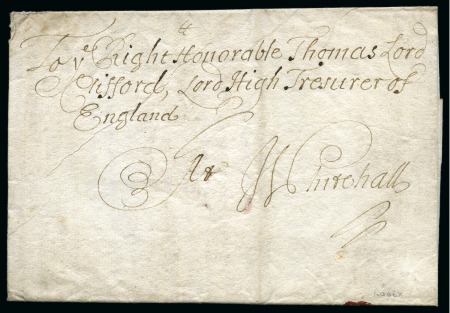 To yͤ Right Honorable Thomas Lord
Clifford, Lord High Tresurer of
England
At Whitehall